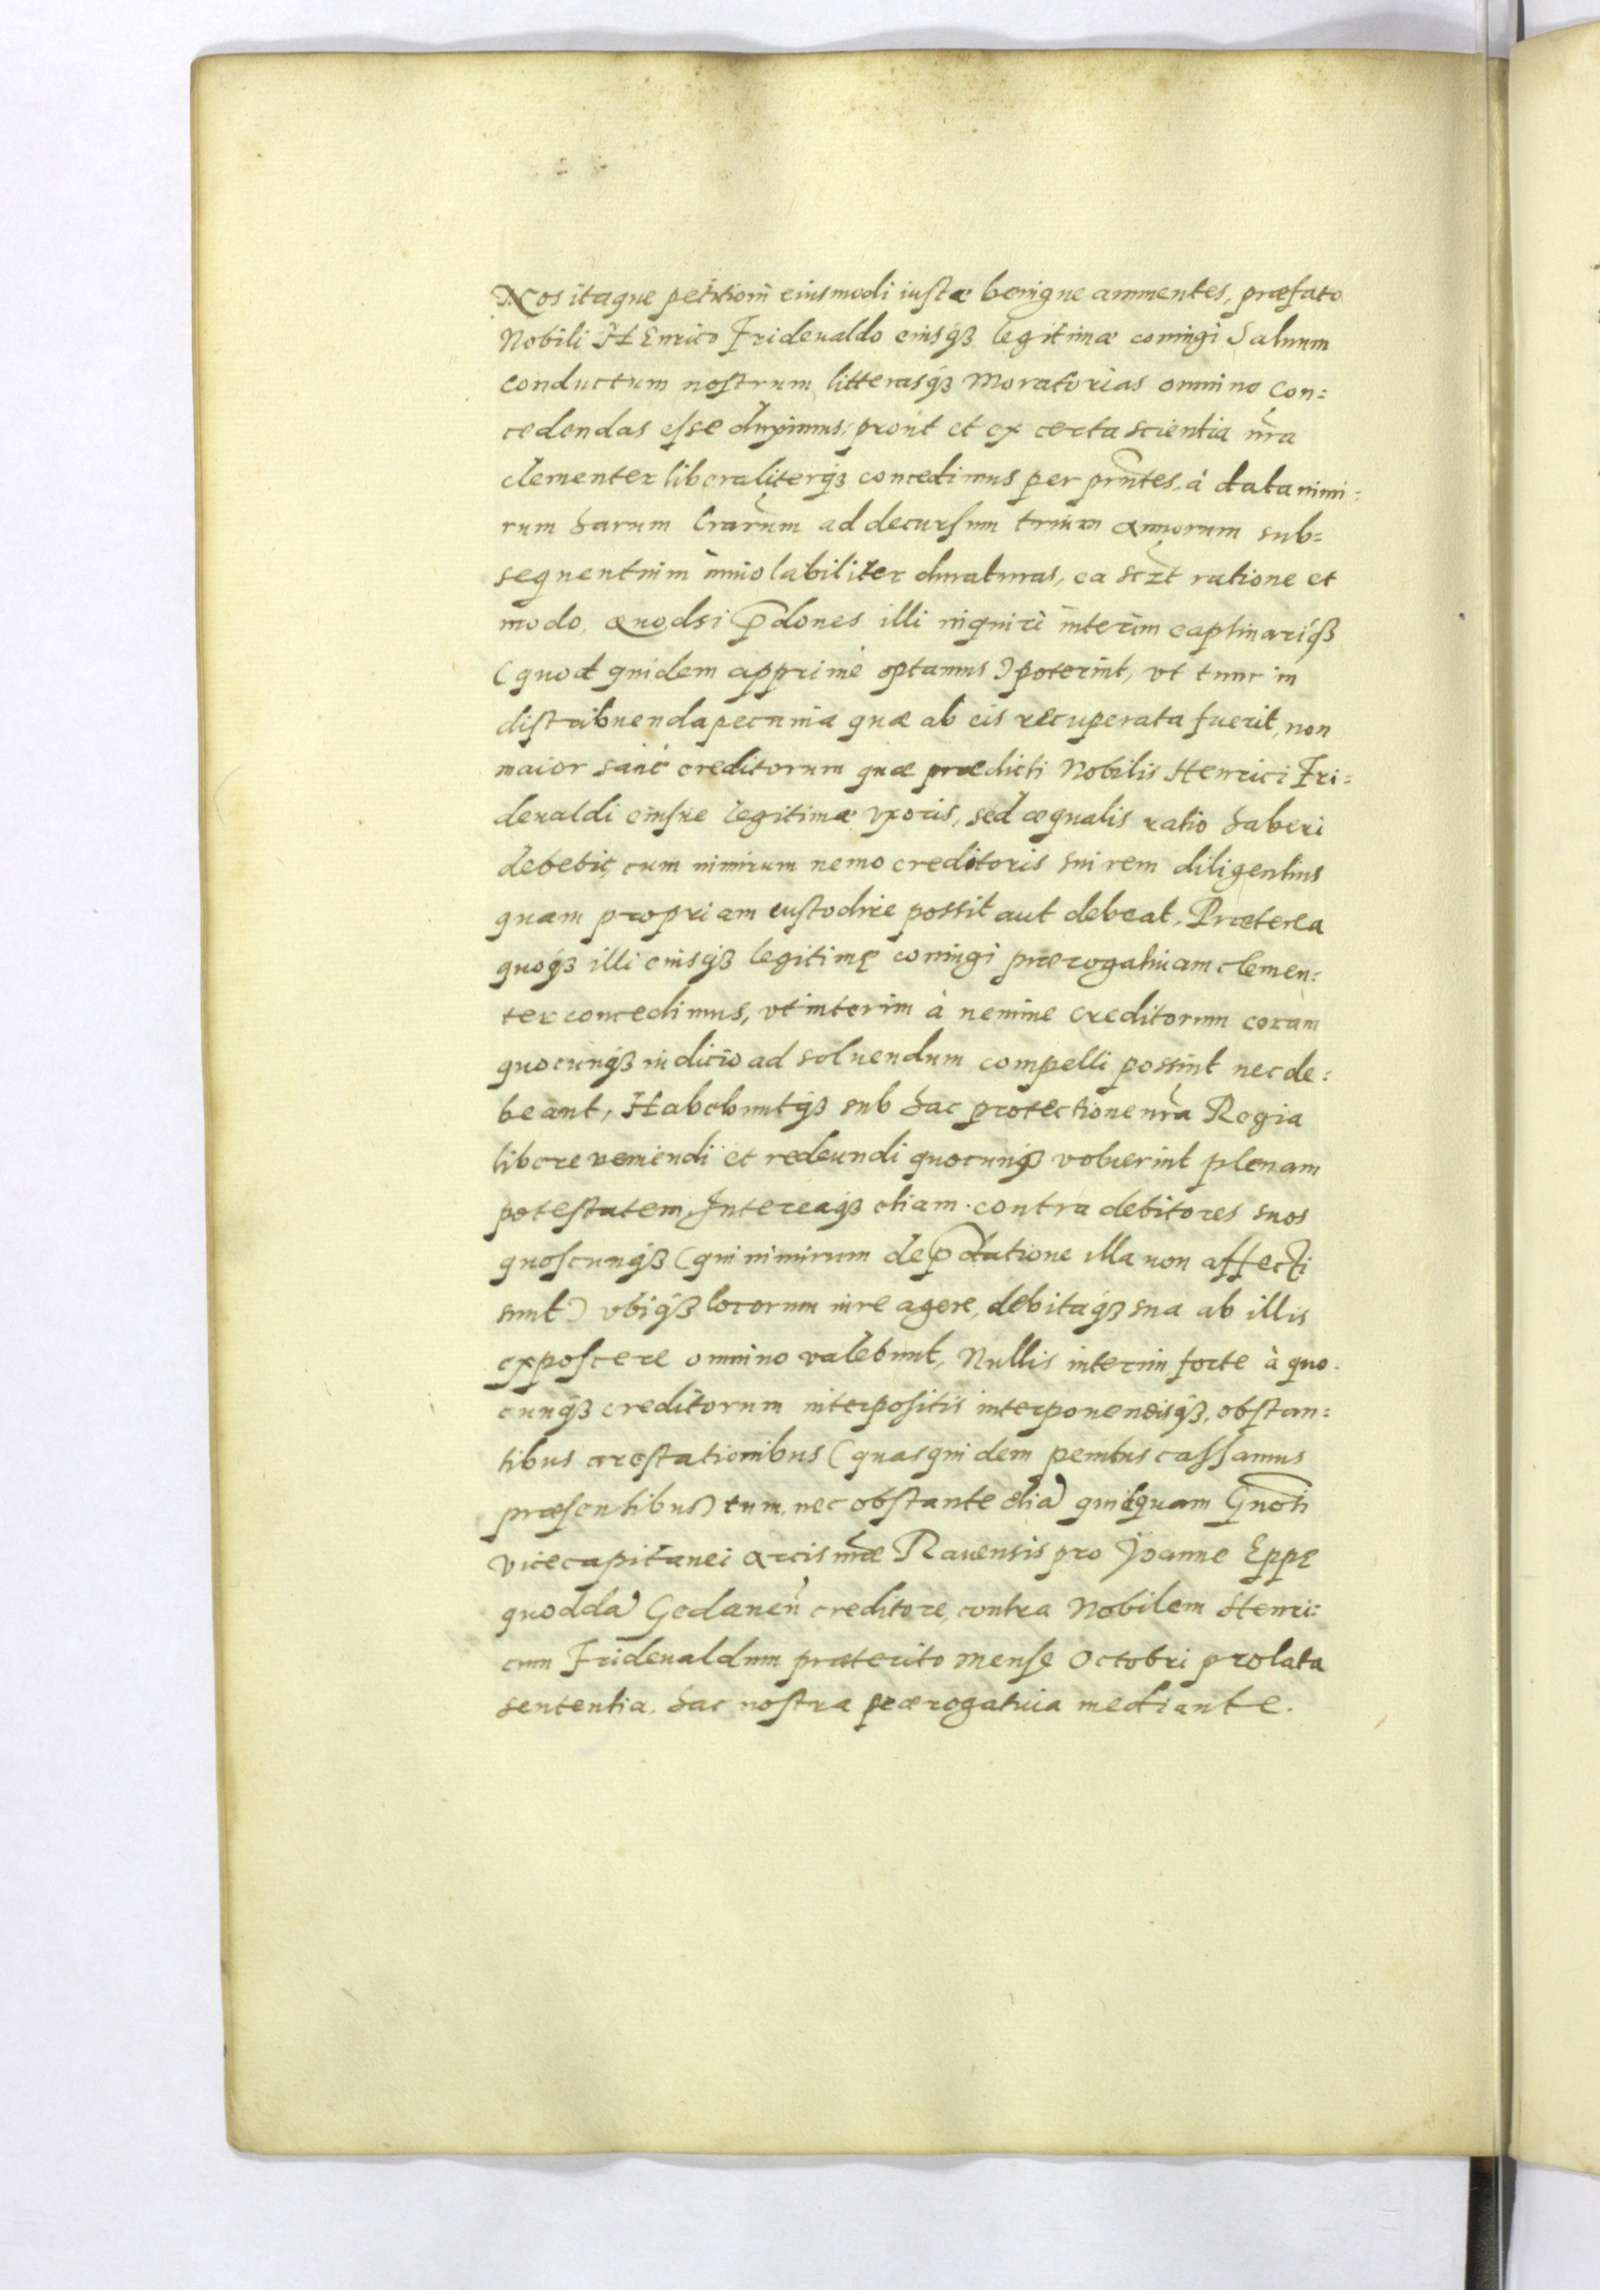 Nos itaque petitioni eiusmodi iustæ benigne annuentes, præfato
Nobili HEnrico Frideualdo eiusq́ꝫ legitimæ coniugi Saluum
conductum nostrum, litterasq́ꝫ Moratorias omnino con=
cedendas esse duximus, prout et ex certa scientia nr̃a
clementer liberaliterq́ꝫ concedimus per pñtes, à data nimi=
rum harum Lrarum ad decursum trium annorum sub=
sequentium inuiolabiliter duraturas, ea sczt ratione et
modo, quodsi p̃dones illi inquiri interim captiuariq́ꝫ
(quod quidem apprimè optamus) poterint, vt tunc in
distribuenda pecunia quæ ab eis recuperata fuerit, non
maior sanè creditorum quæ prædicti Nobilis Henrici Fri=
deualdi eiusue legitimæ vxoris, sed æqualis ratio haberi
debebit, cum nimirum nemo creditoris sui rem diligentius
quam propriam custodire possit aut debeat, Præterea
quoq́ꝫ illi eiusq́ꝫ legitimę coniugi prærogatiuam clemen=
ter concedimus, vt interim à nemine creditorum coram
quocunq́ꝫ iudicio ad soluendum compelli possint nec de=
beant, Habebuntq́ꝫ sub hac protectione nr̃a Regia
libere veniendi et redeundi quocunq́ꝫ voluerint plenam
potestatem, Intereaq́ꝫ etiam contra debitores suos
quoscunq́ꝫ (qui nimirum dep̃datione illa non affecti
sunt) vbiq́ꝫ locorum iure agere, debitaq́ꝫ sua ab illis
exposcere omnino valebunt, Nullis interim forte à quo
cunq́ꝫ creditorum interpositis interponendisq́ꝫ, obstan=
tibus arestationibus (quas quidem penitus cassamus
præsentibus) tum, nec obstante etiã quicquam Gnosi
vicecapitanei arcis nr̃æ Rauensis pro Joanne Eppę
quoddã Gedanen̄ creditore, contra Nobilem Henri=
cum Frideualdum præterito mense Octobri prolata
sententia, hac nostra prærogatiua mediante.